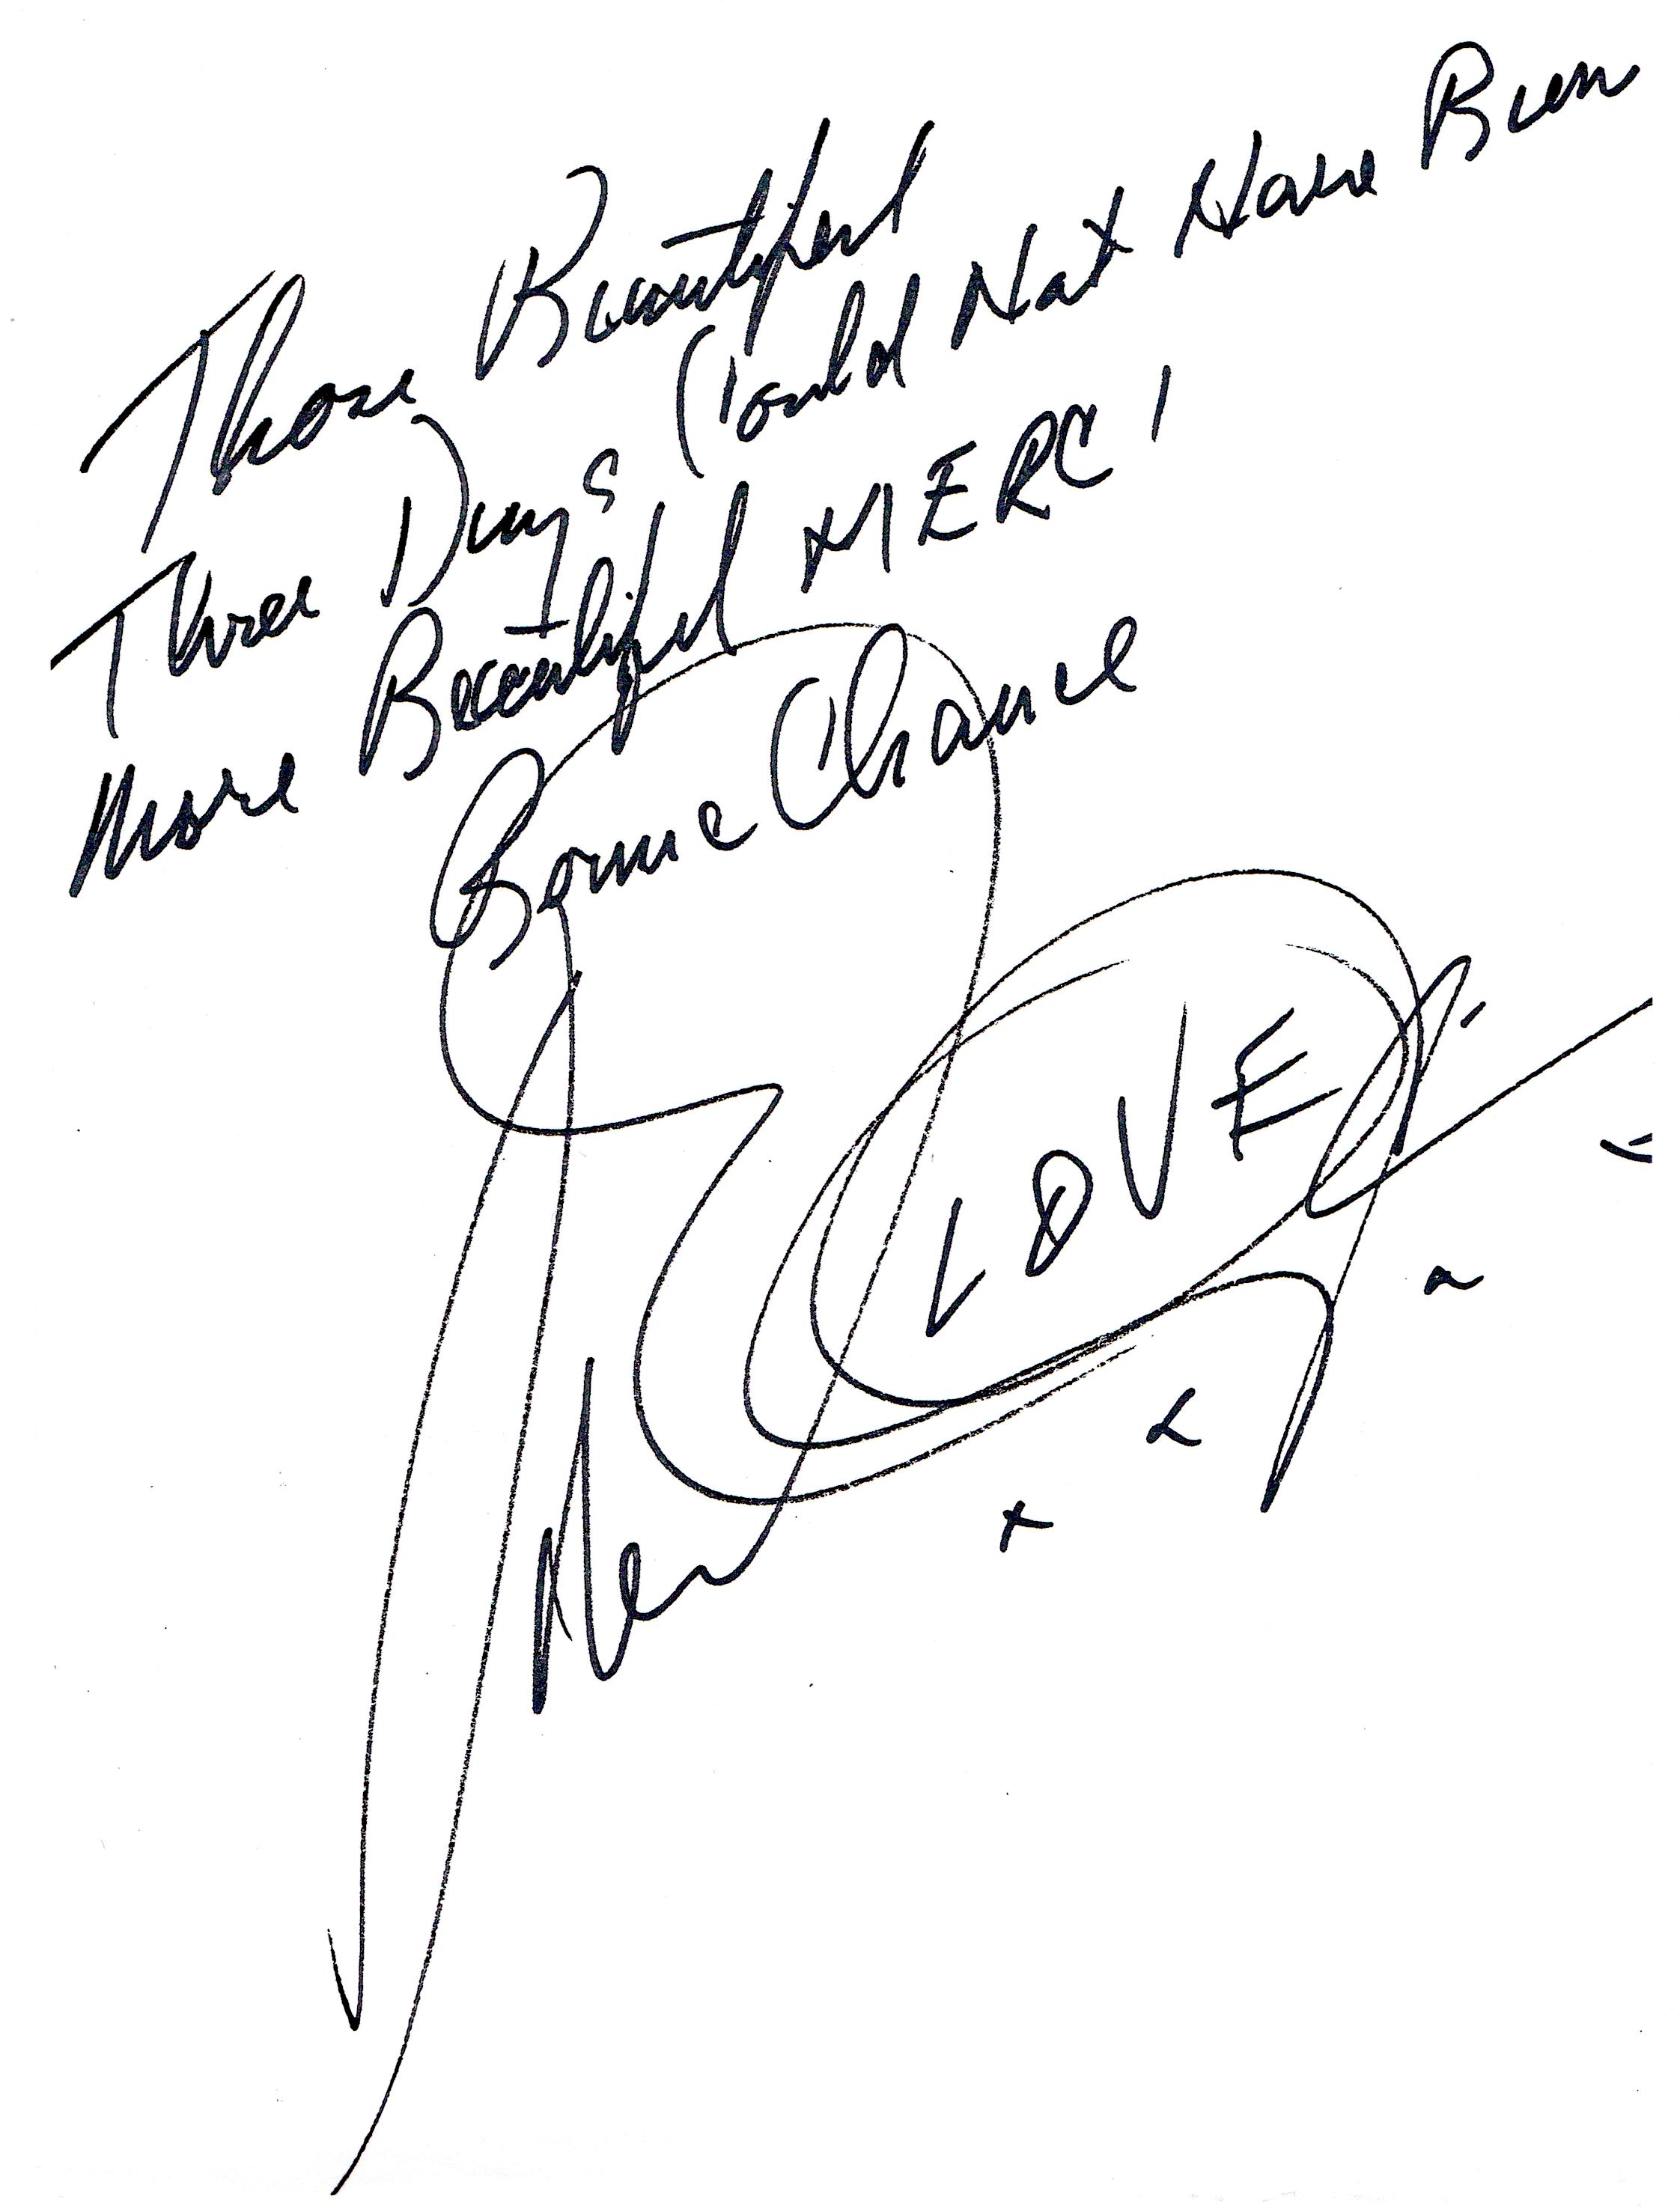 Those Beautiful
Three Days Could Not Have Been
More Beautiful MERCI
Bonne Chance
LOVE